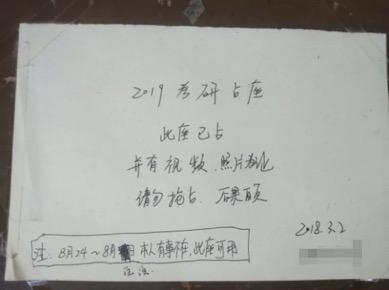 2019考研占座
此座已占
并有视频、照片为证
请勿抢占
2018.3.2
注: 8月24~8月 日 本人有事不在,此座可用